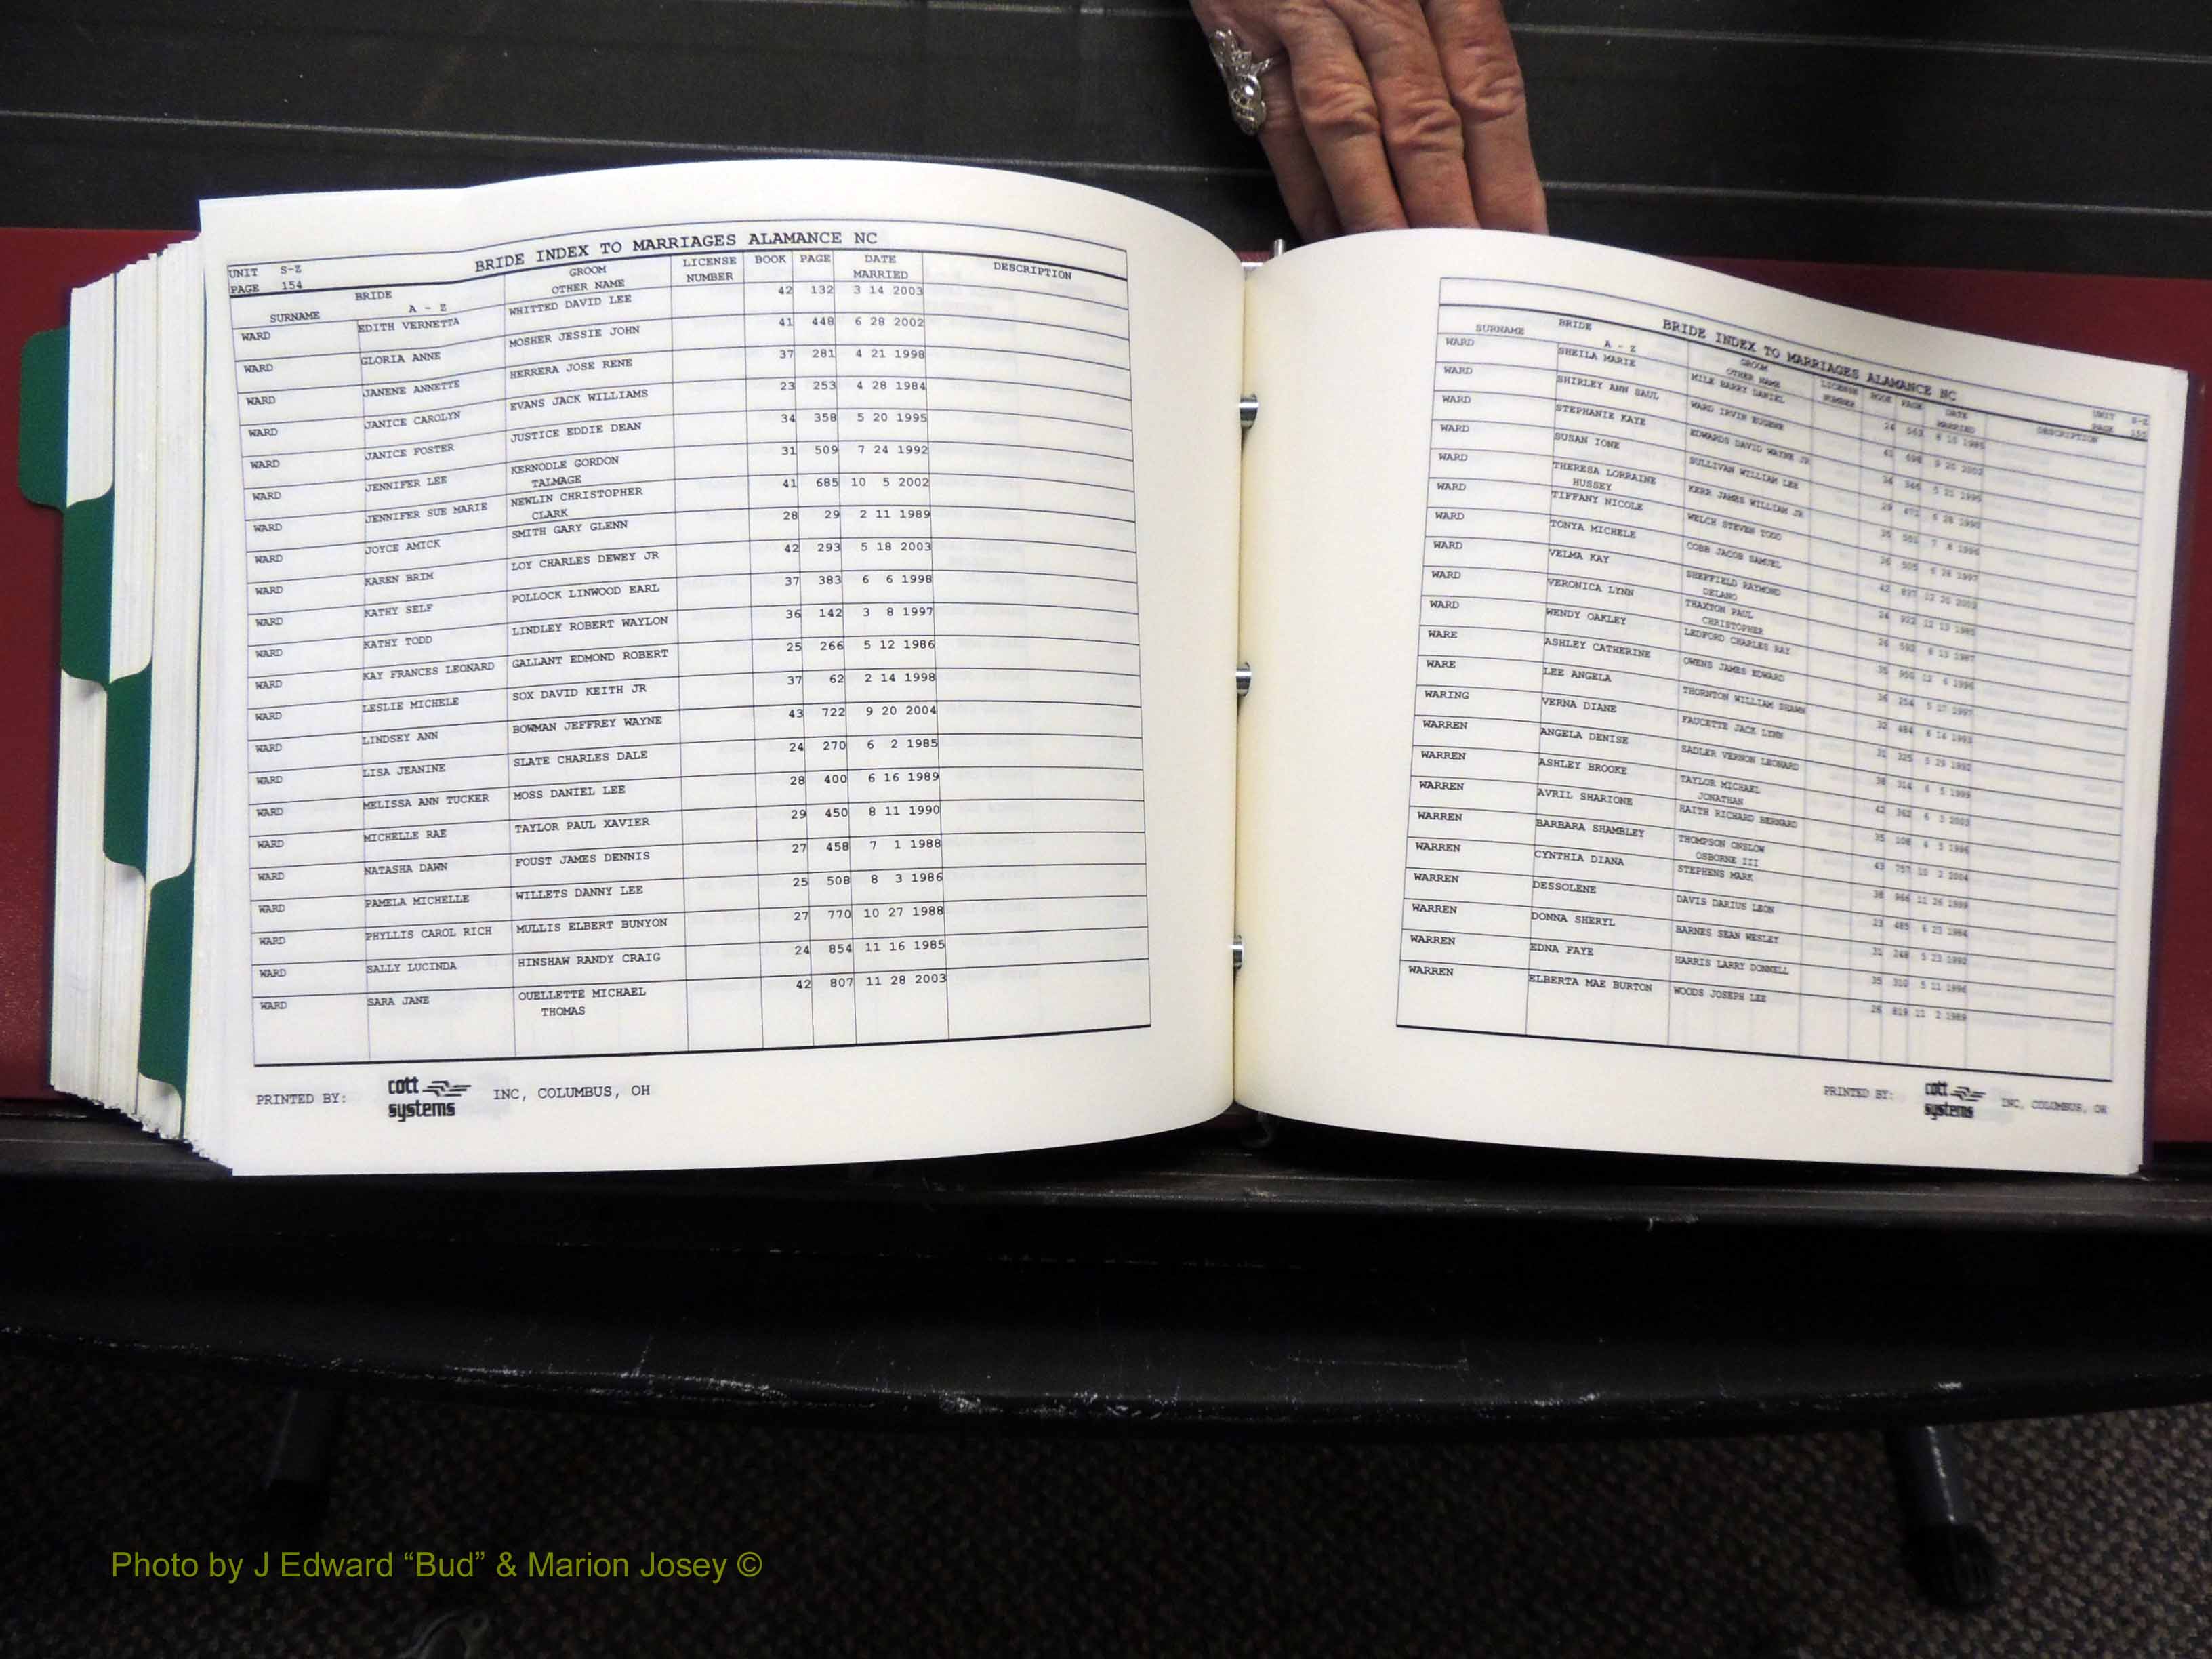 UNIT S-Z
PAGE 154
BRIDE INDEX TO MARRIAGES ALAMANCE NC
SURNAME BRIDE A - Z GROOM OTHER NAME LICENSE NUMBER BOOK PAGE DATE MARRIED DESCRIPTION
WARD EDITH VERNETTA WHITTED DAVID LEE 42 132 3 14 2003
WARD GLORIA ANNE MOSHER JESSIE JOHN 41 448 6 28 2002
WARD JANENE ANNETTE HERRERA JOSE RENE 37 281 4 21 1998
WARD JANICE CAROLYN EVANS JACK WILLIAMS 23 253 4 28 1984
WARD JANICE FOSTER JUSTICE EDDIE DEAN 34 358 5 20 1995
WARD JENNIFER LEE KERNODLE GORDON 31 509 7 24 1992
TALMAGE
WARD JENNIFER SUE MARIE NEWLIN CHRISTOPHER 41 685 10 5 2002
CLARK
WARD JOYCE AMICK SMITH GARY GLENN 28 29 2 11 1989
WARD KAREN BRIM LOY CHARLES DEWEY JR 42 293 5 18 2003
WARD KATHY SELF POLLOCK LINWOOD EARL 37 383 6 6 1998
WARD KATHY TODD LINDLEY ROBERT WAYLON 36 142 3 8 1997
WARD KAY FRANCES LEONARD GALLANT EDMOND ROBERT 25 266 5 12 1986
WARD LESLIE MICHELE SOX DAVID KEITH JR 37 62 2 14 1998
WARD LINDSEY ANN BOWMAN JEFFREY WAYNE 43 722 9 20 2004
WARD LISA JEANINE SLATE CHARLES DALE 24 270 6 2 1985
WARD MELISSA ANN TUCKER MOSS DANIEL LEE 28 400 6 16 1989
WARD MICHELLE RAE TAYLOR PAUL XAVIER 29 450 8 11 1990
WARD NATASHA DAWN FOUST JAMES DENNIS 27 458 7 1 1988
WARD PAMELA MICHELLE WILLETS DANNY LEE 25 508 8 3 1986
WARD PHYLLIS CAROL RICH MULLIS ELBERT BUNYON 27 770 10 27 1988
WARD SALLY LUCINDA HINSHAW RANDY CRAIG 24 854 11 16 1985
WARD SARA JANE OUELLETTE MICHAEL 42 807 11 28 2003
THOMAS
PRINTED BY: cott systems INC, COLUMBUS, OH
BRIDE INDEX TO MARRIAGES ALAMANCE NC
UNIT S-Z
PAGE 155
SURNAME BRIDE A - Z GROOM OTHER NAME LICENSE NUMBER BOOK PAGE DATE MARRIED DESCRIPTION
WARD SHEILA MARIE BARRY DANIEL 24
WARD SHIRLEY ANN SAUL WARD IRVIN EUGENE
WARD STEPHANIE KAYE EDWARDS DAVID WAYNE JR
WARD SUSAN IONE SULLIVAN WILLIAM LEE
WARD THERESA LORRAINE KERR JAMES WILLIAM JR
HUSSEY
WARD TIFFANY NICOLE WELCH STEVEN TODD
WARD TONYA MICHELE COBB JACOB SAMUEL
WARD VELMA KAY SHEFFIELD RAYMOND
DELANO
WARD VERONICA LYNN THAXTON PAUL
CHRISTOPHER
WARD WENDY OAKLEY LEDFORD CHARLES RAY
WARE ASHLEY CATHERINE OWENS JAMES EDWARD
WARE LEE ANGELA THORNTON WILLIAM SHAWN
WARING VERNA DIANE FAUCETTE JACK LYNN
WARREN ANGELA DENISE SADLER VERNON LEONARD
WARREN ASHLEY BROOKE TAYLOR MICHAEL
JONATHAN
WARREN AVRIL SHARIONE HAITH RICHARD BERNARD
WARREN BARBARA SHAMBLEY THOMPSON ONSLOW
OSBORNE III
WARREN CYNTHIA DIANA STEPHENS MARK
WARREN DESSOLENE DAVIS DARIUS LEON
WARREN DONNA SHERYL BARNES SEAN WESLEY
WARREN EDNA FAYE HARRIS LARRY DONNELL
WARREN ELBERTA MAE BURTON WOODS JOSEPH LEE
PRINTED BY: cott systems INC, COLUMBUS, OH
Photo by J Edward “Bud” & Marion Josey ©